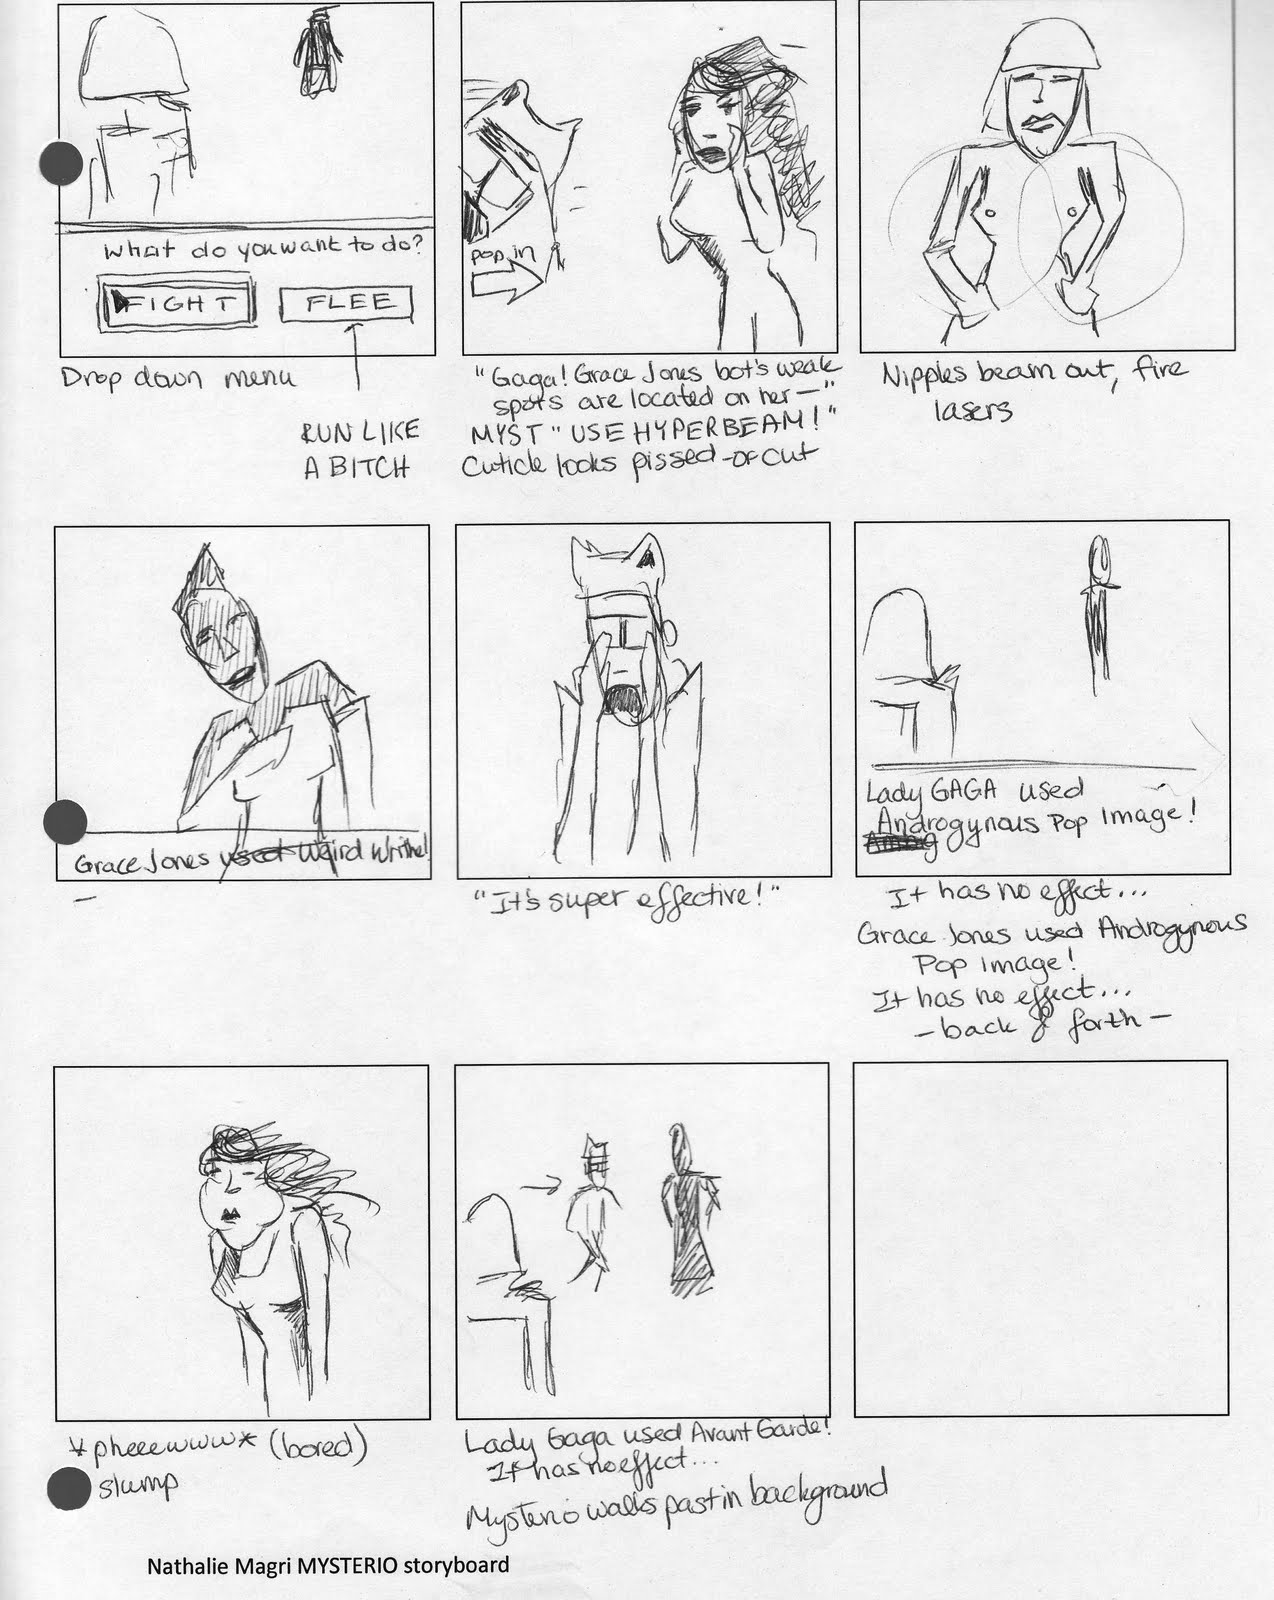 What do you want to do?
FIGHT
FLEE
Drop down menu
RUN LIKE
A BITCH
pop in
"Gaga! Grace Jones bot's weak
spots are located on her—"
MYST "USE HYPERBEAM!"
Cuticle looks pissed-OFCUT
Nipples beam out, fire
lasers
Grace Jones used Weird Writhe!
"It's super effective!"
Lady GAGA used
Androgynous Pop Image!
Ambig
It has no effect...
Grace Jones used Androgynous
Pop Image!
It has no effect...
- back & forth -
*pheeewww* (bored)
slump
Lady Gaga used Avant Garde!
It has no effect...
Mysterio walks past in background
Nathalie Magri MYSTERIO storyboard